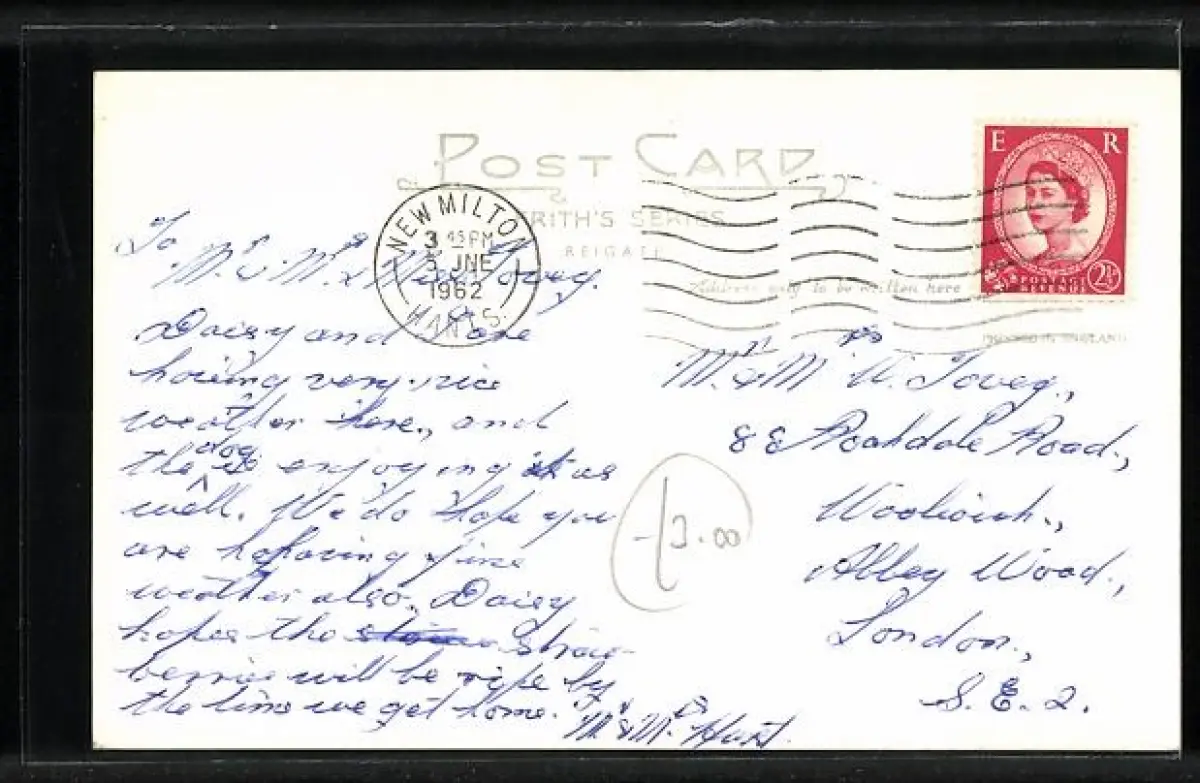 POST CARD
FRITH'S SERIES
REIGATE
NEW MILTON
3 45 PM
3 JNE
1962
HANTS.
E R
POSTAGE
REVENUE
2½D
Address only to be written here
PRINTED IN ENGLAND
To
Mr & Mrs & Miss Tovey.
Daisy and I are
having very nice
weather here, and
the dog is enjoying it as
well. We do hope you
are having fine
weather also, Daisy
hopes the straw-
berries will be ripe by
the time we get home.
Mr & Mrs Hunt.
Mr & Mrs W. Tovey,
88 Road,
Woolwich.,
Abbey Wood.,
London.,
S.E.2.
13.00